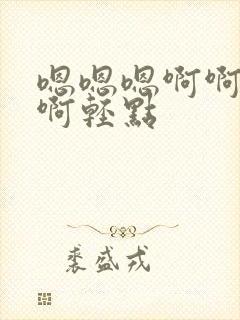 嗯嗯嗯啊啊
啊轻點
裘盛戎